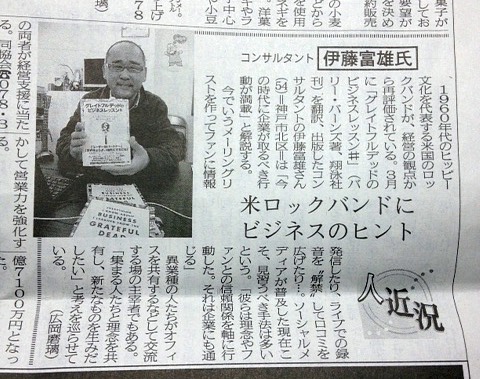 コンサルタント 伊藤富雄氏
1960年代のヒッピー
文化を代表する米国のロッ
クバンドが、経営の観点か
ら再評価されている。3月
に「グレイトフルデッドの
ビジネスレッスン#」(バ
リー・バーンズ著、翔泳社
刊)を翻訳、出版したコン
サルタントの伊藤富雄さん
(54)=神戸市北区=は「今
の時代に企業が取るべき行
動が満載」と解説する。
今でいうメーリングリ
ストを作ってファンに情報
米ロックバンドに
ビジネスのヒント
人近況
発信したり、ライブでの録
音を“解禁”して口コミを
広げたり…。ソーシャルメ
ディアが普及した現在こ
そ、見習うべき手法は多い
という。「彼らは理念やフ
ァンとの信頼関係を軸に行
動した。それは企業にも通
じる」
異業種の人たちがオフィ
スを共有するなどして交流
する場の主宰者でもある。
「集まる人たちと理念を共
有し、新たなものを生みだ
したい」と考えを巡らせて
いる。 (広岡磨璃)
グレイトフルデッドの
ビジネスレッスン
BUSINESS
GRATEFUL
DEAD
かして営業力を強化す
の両者が経営支援に当た
る。同協会☎078・3
億7100万円となっ
た。